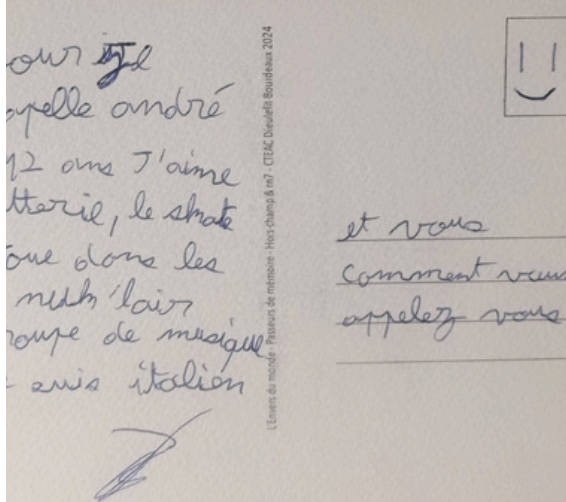 our je
apelle andré
12 ans J'aime
tterie, le skate
oue dans les
lair
oupe de musique
suis italien
L'Envers du monde - Passeurs de mémoire - Hors-champ & rn7 - CTEAC Dieulefit Bourdeaux 2024
et vous
comment vous
appelez vous